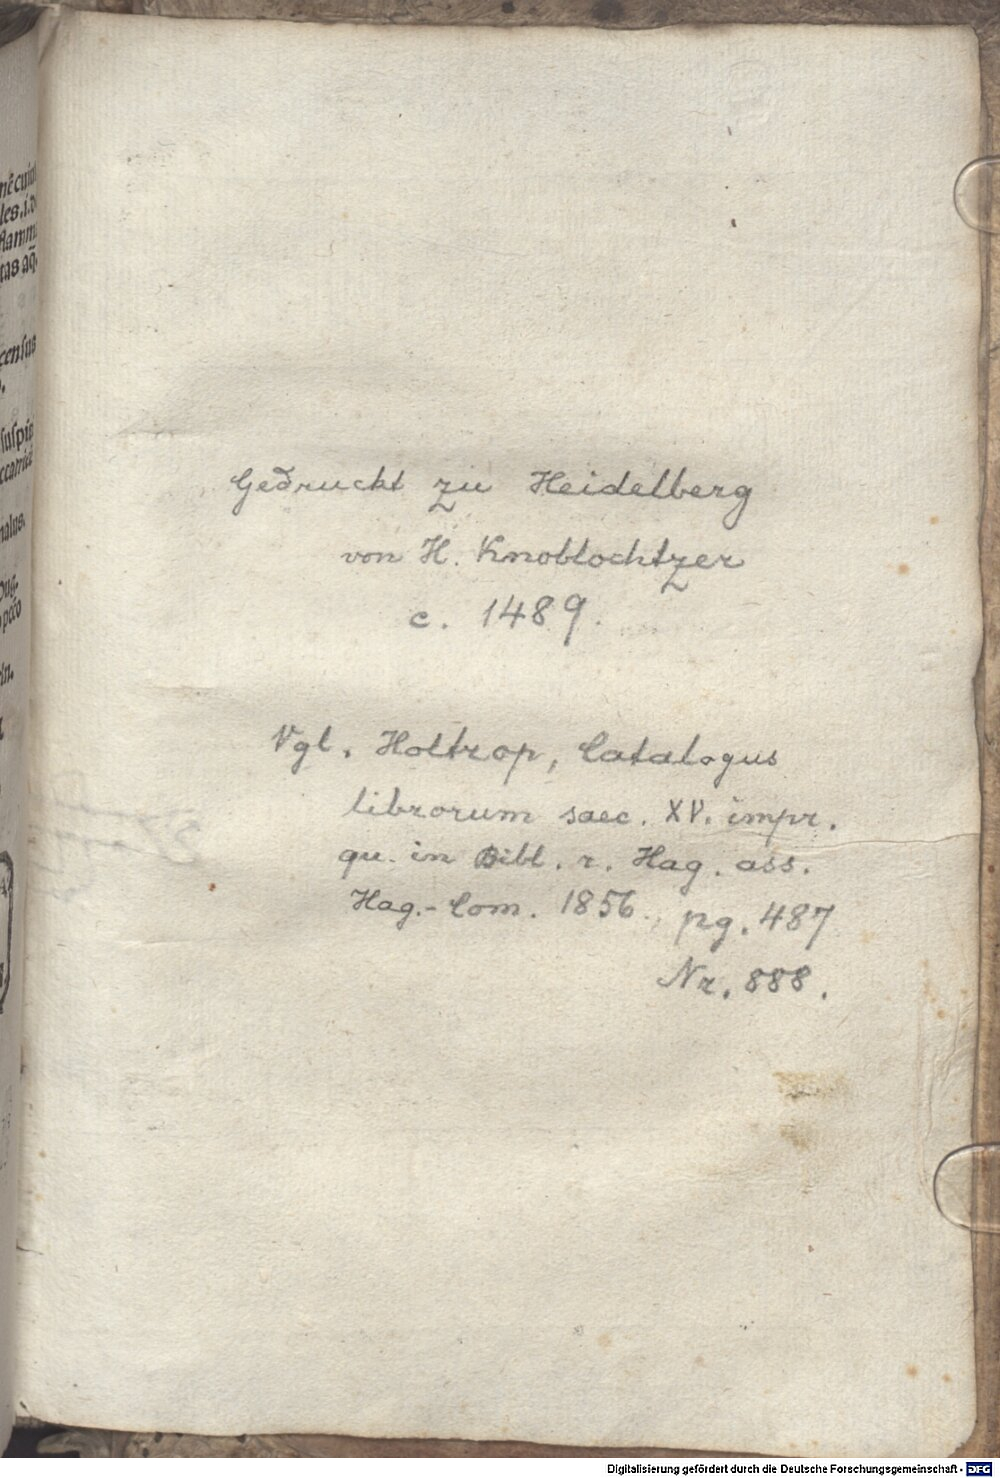 Gedruckt zu Heidelberg
von H. Knoblochtzer
c. 1489.
Vgl. Holtrop, Catalogus
librorum saec. XV. impr.
qu. in Bibl. r. Hag. ass.
Hag.-Com. 1856. pg. 487
Nr. 888.
census
nalus.
Digitalisierung gefördert durch die Deutsche Forschungsgemeinschaft - DFG